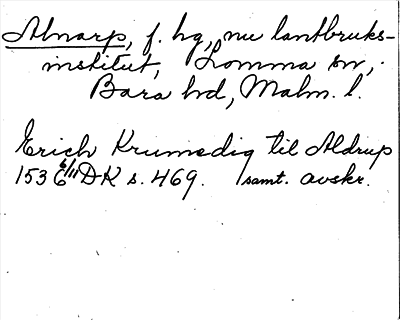 Alnarp, f. hg, nu lantbruks-
institut, Lomma sn,
Bara hd, Malm. l.
Erich Krumedig til Aldrup
153 6/11 DK s. 469. samt. avskr.